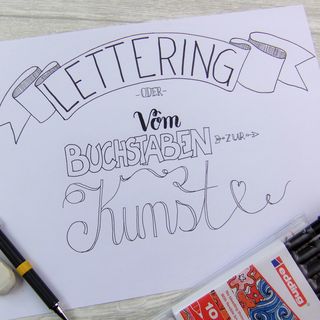 LETTERING
-ODER-
Vom
BUCHSTABEN
ZUR
Kunst
edding
10